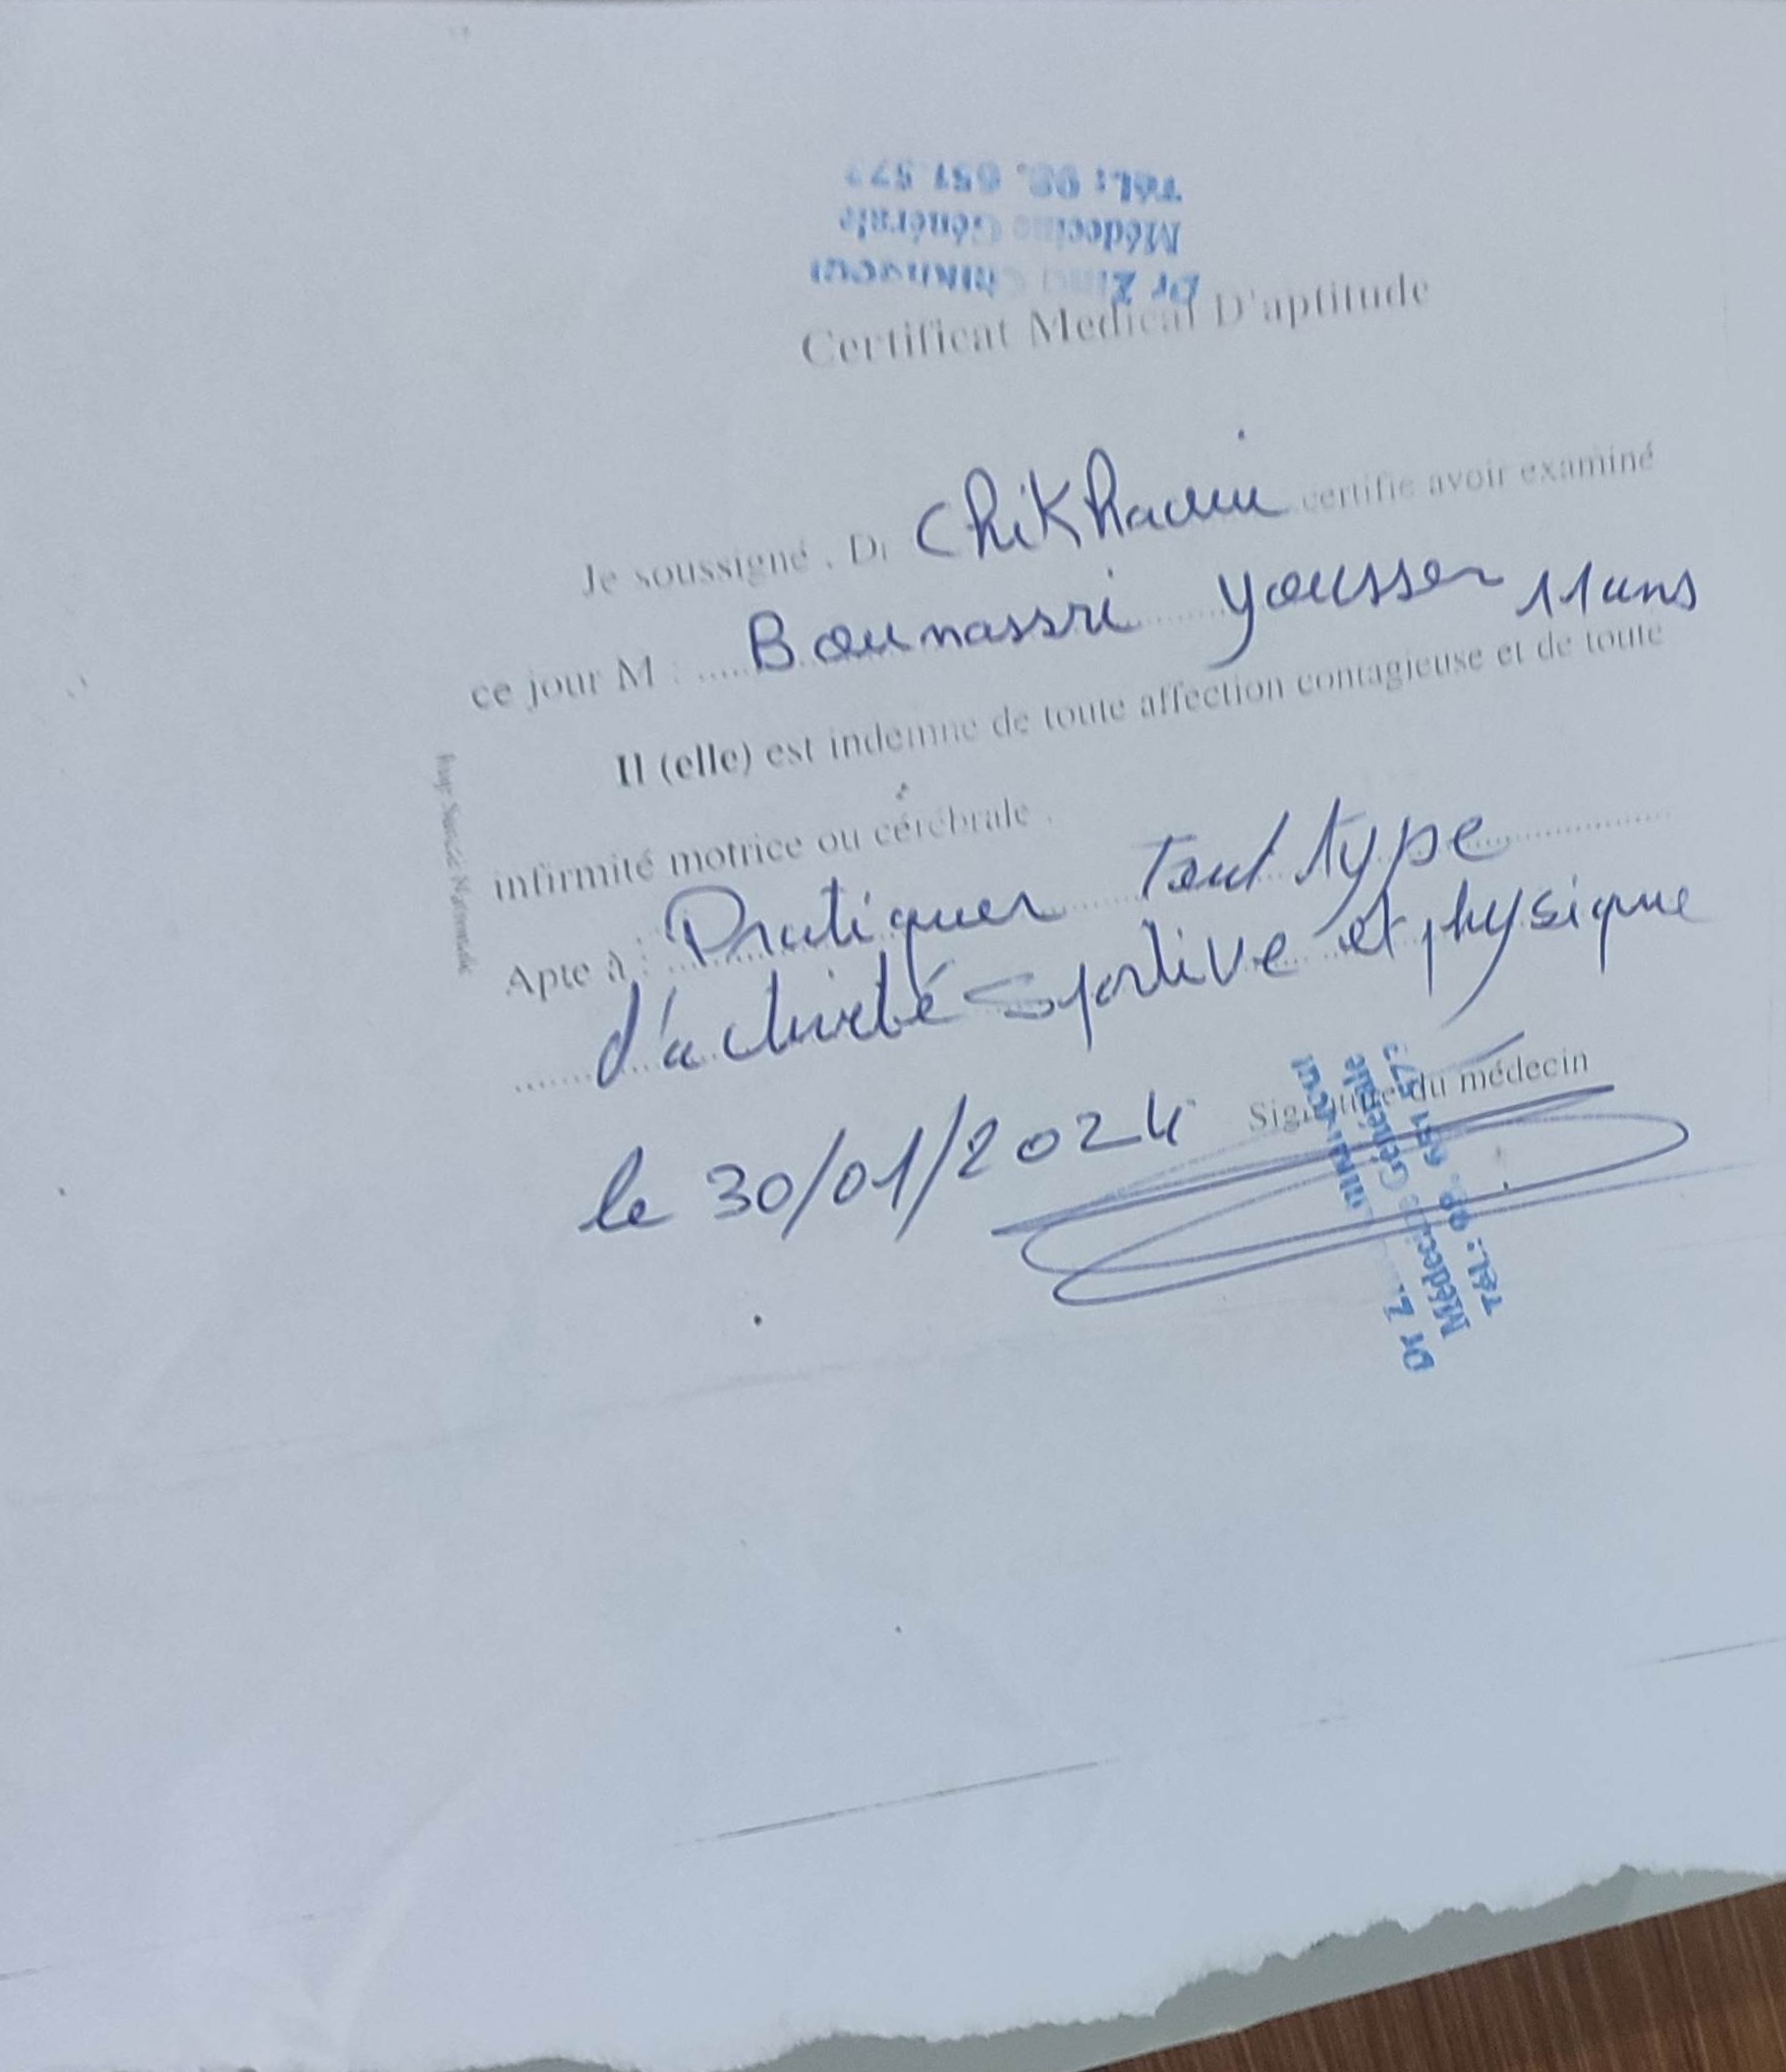 Dr Chikhaoui
Médecine Générale
Tél: 98. 651.573
Certificat Medical D'aptitude
Je soussigné , Dr Chikhaoui certifie avoir examiné
ce jour M : ..... Bounassri Youssef 11 ans
Il (elle) est indemne de toute affection contagieuse et de toute
infirmité motrice ou cérébrale .
Apte à : Pratiquer tout type
d'activité sportive et physique
Signature du médecin
le 30/01/2024
Dr
Médecine Générale
Tél.: 98. 651 573